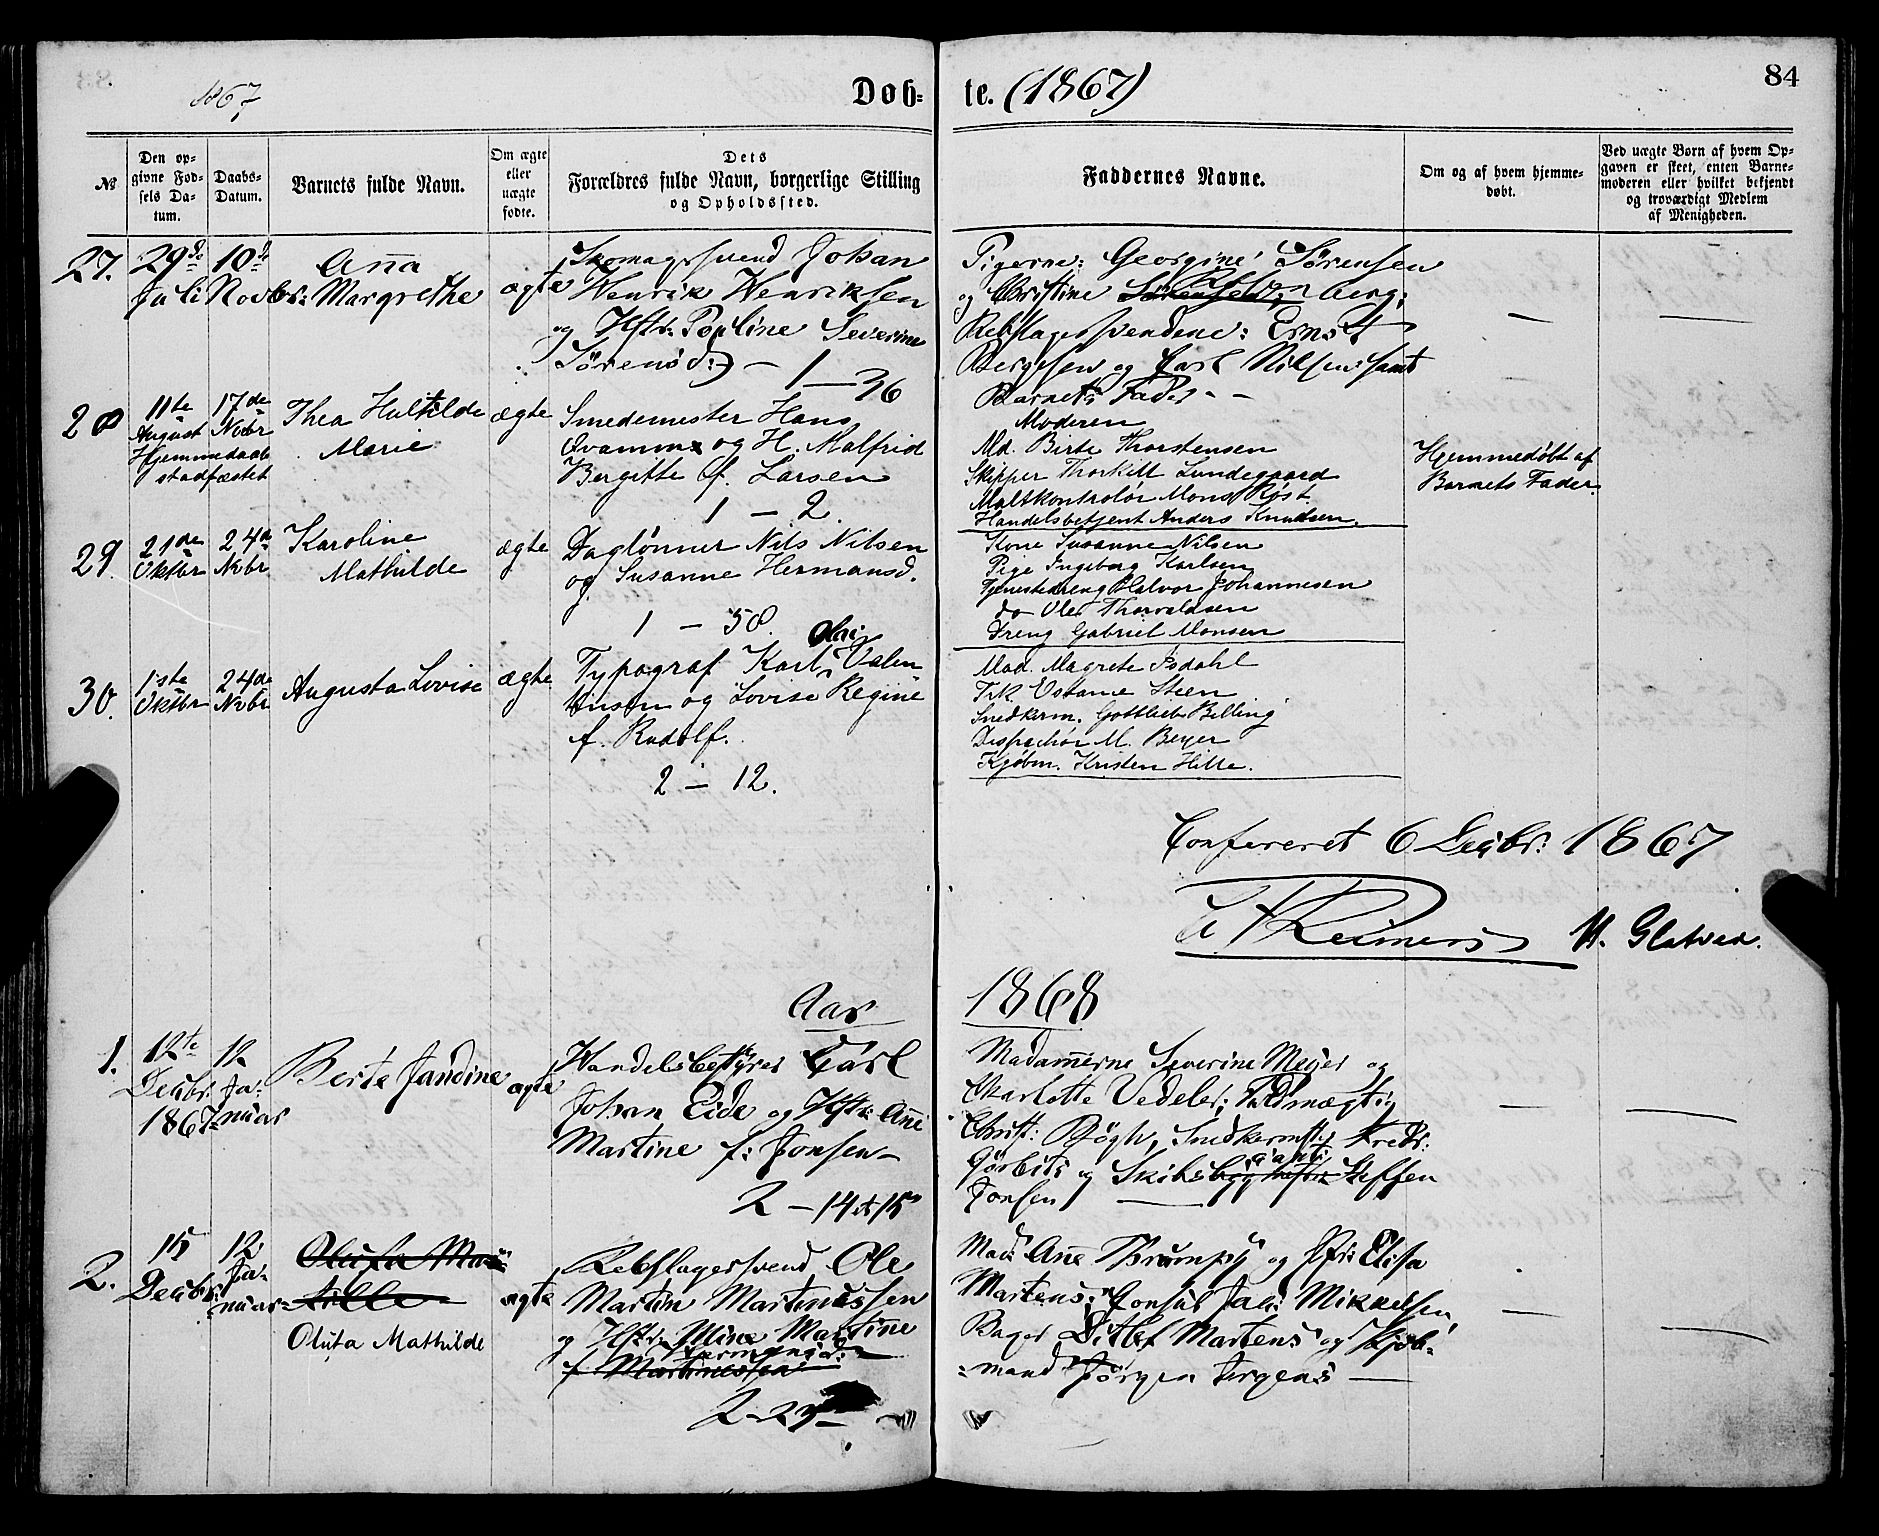 1867
Døb-
te. (1867)
84
№
Den op-
givne Fød-
sels Da-
tum.
Daabs-
Datum.
Barnets fulde Navn.
Om ægte
eller
uægte
fødte.
Dets
Forældres fulde Navn, borgerlige Stilling
og Opholdssted.
Faddernes Navne.
Om og af hvem hjemme-
døbt.
Ved uægte Børn af hvem Op-
gaven er skeet, enten Barne-
moderen eller hvilket bekjendt
og troværdigt Medlem
af Menigheden.
27.
29de
Juli
10de
Novbr:
Anna
Margrethe
ægte
Skomagersvend Johan
Henrik Henriksen
og Hstr: Pouline Severine
Sørensd:
1 — 36
Pigerne: Georgine Sørensen
og Christine berg;
Rebslagersvendene: Ernst
Bergesen og Carl Nilsen samt
Barnets Fader
28
11te
August
Hjemmedaab
stadfæstet
17de
Novbr
Thea Hultilde
Marie
ægte
Smedemester Hans
Qvamme og H. Malfrid
Bergitte f. Larsen
1 — 2
Moderen
Md. Birte Thorstensen
Skipper Thorkill Lundegaard
Maltkontrolør Mons Røst
Handelsbetjent Anders Knudsen.
Hjemmedøbt af
Barnets Fader
29.
21de
Oktbr
24de
Nvbr
Karoline
Mathilde
ægte
Daglønner Nils Nilsen
og Susanne Hermansd.
1 — 58.
Kone Susanne Nilsen
Pige Ingeborg Karlsen
Tjenestedreng Halvor Johannesen
do Ole Thorvaldsen
Dreng Gabriel Monsen
30.
1ste
Oktbr
24de
Nvbr
Augusta Lovise
ægte
Olai
Typograf Karl Valen
tinsen og Lovise Regine
f. Rudolf.
2 — 12.
Mad. Magrete Isdahl
Frk Steen
Snedkerm. Gottlieb Billing
Dispachør M. Beyer
Kjøbm. Kristen Hille.
Confereret 6 Decbr: 1867
Reimers H. Glatved.
Aar
1868
1.
12te
Decbr.
1867
12
Ja-
nuar
Berte Jandine
ægte
Handelsbestyrer Carl
Johan Eide og Hstr: Anne
Martine f: Jonsen
2 — 14 15
Madamerne Severine Meyer og
Charlotte Vedeler; Fuldmægtig
Christ: Bøgh, Snedkermstr Fredr:
Görbitz og Steffen
Jonsen
2.
15
Decbr:
12
Ja-
nuar
Olufa Ma
tille
Olufa Mathilde
ægte
Rebslagersvend Ole
Martin Martinussen
og Hstr: Mine Martine
Hermansd:
f. Martinussen
2-25
Mad: Ane Trumpy og Jfr: Elisa
Martens; Consul Jak: Mikkelsen,
Bager Ditlef Martens og Kjøb-
mand Jørgen Jørgens